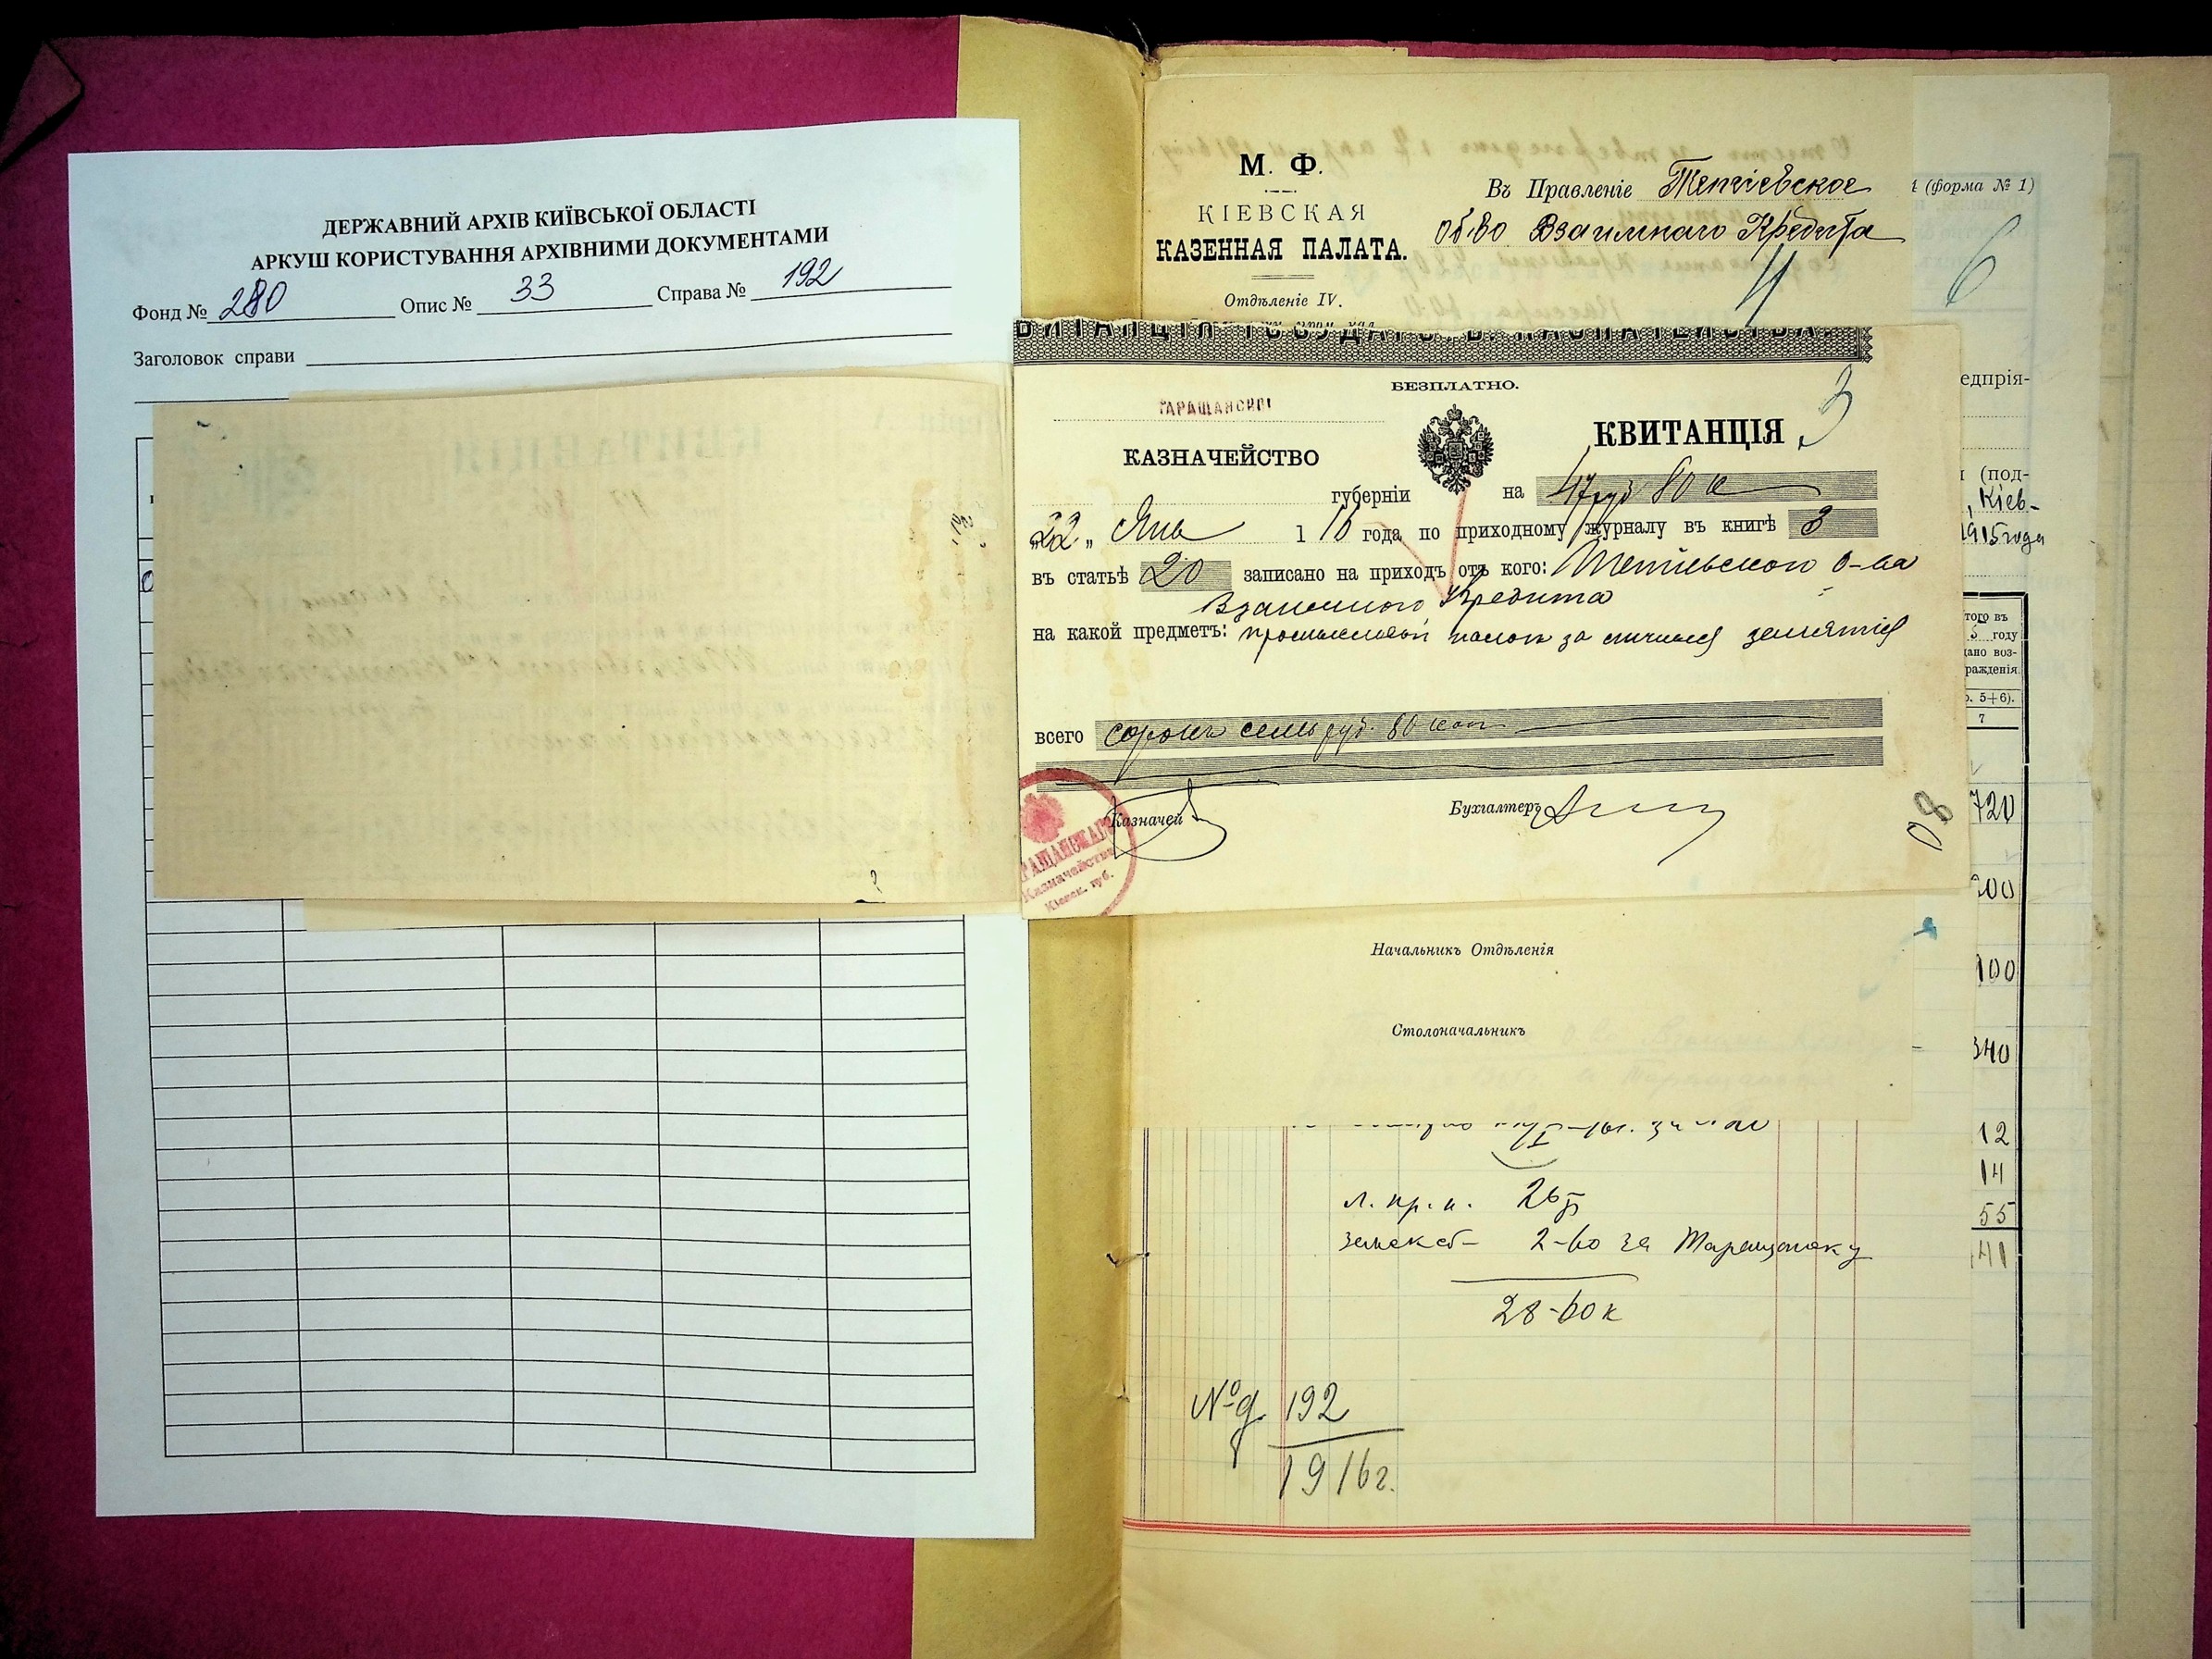 ДЕРЖАВНИЙ АРХІВ КИЇВСЬКОЇ ОБЛАСТІ
АРКУШ КОРИСТУВАННЯ АРХІВНИМИ ДОКУМЕНТАМИ
Фонд № 280 Опис № 33 Справа № 192
Заголовок справи
М. Ф.
КІЕВСКАЯ
КАЗЕННАЯ ПАЛАТА.
Отдѣленіе IV.
Въ Правленіе Тетіевское
об-во Взаимнаго Кредита
4
(форма № 1)
6
БЕЗПЛАТНО.
ТАРАЩАНСКОЕ
КАЗНАЧЕЙСТВО
КВИТАНЦІЯ
3
губерніи на 47 руб 80 к
"22" Янв 1916 года по приходному журналу въ книгѣ 3
въ статьѣ 20 записано на приходъ отъ кого: Тетіевского о-ва
Взаимного Кредита
на какой предметъ: промысловой налог за личныя занятія
всего сорокъ семь руб. 80 коп
Казначей
Бухгалтеръ
ТАРАЩАНСКАГО
Казначейства
Кіевск. губ.
80
едпрія-
(под-
, Кіев-
1915 года
того въ
году
дано воз-
ражденія.
5+6).
7
720
200
100
340
12
14
55
41
Начальникъ Отдѣленія
Столоначальникъ
л. пр. н.
земск сб- 2-60 за Таращанку
28-60 к
№ д. 192
1916 г.